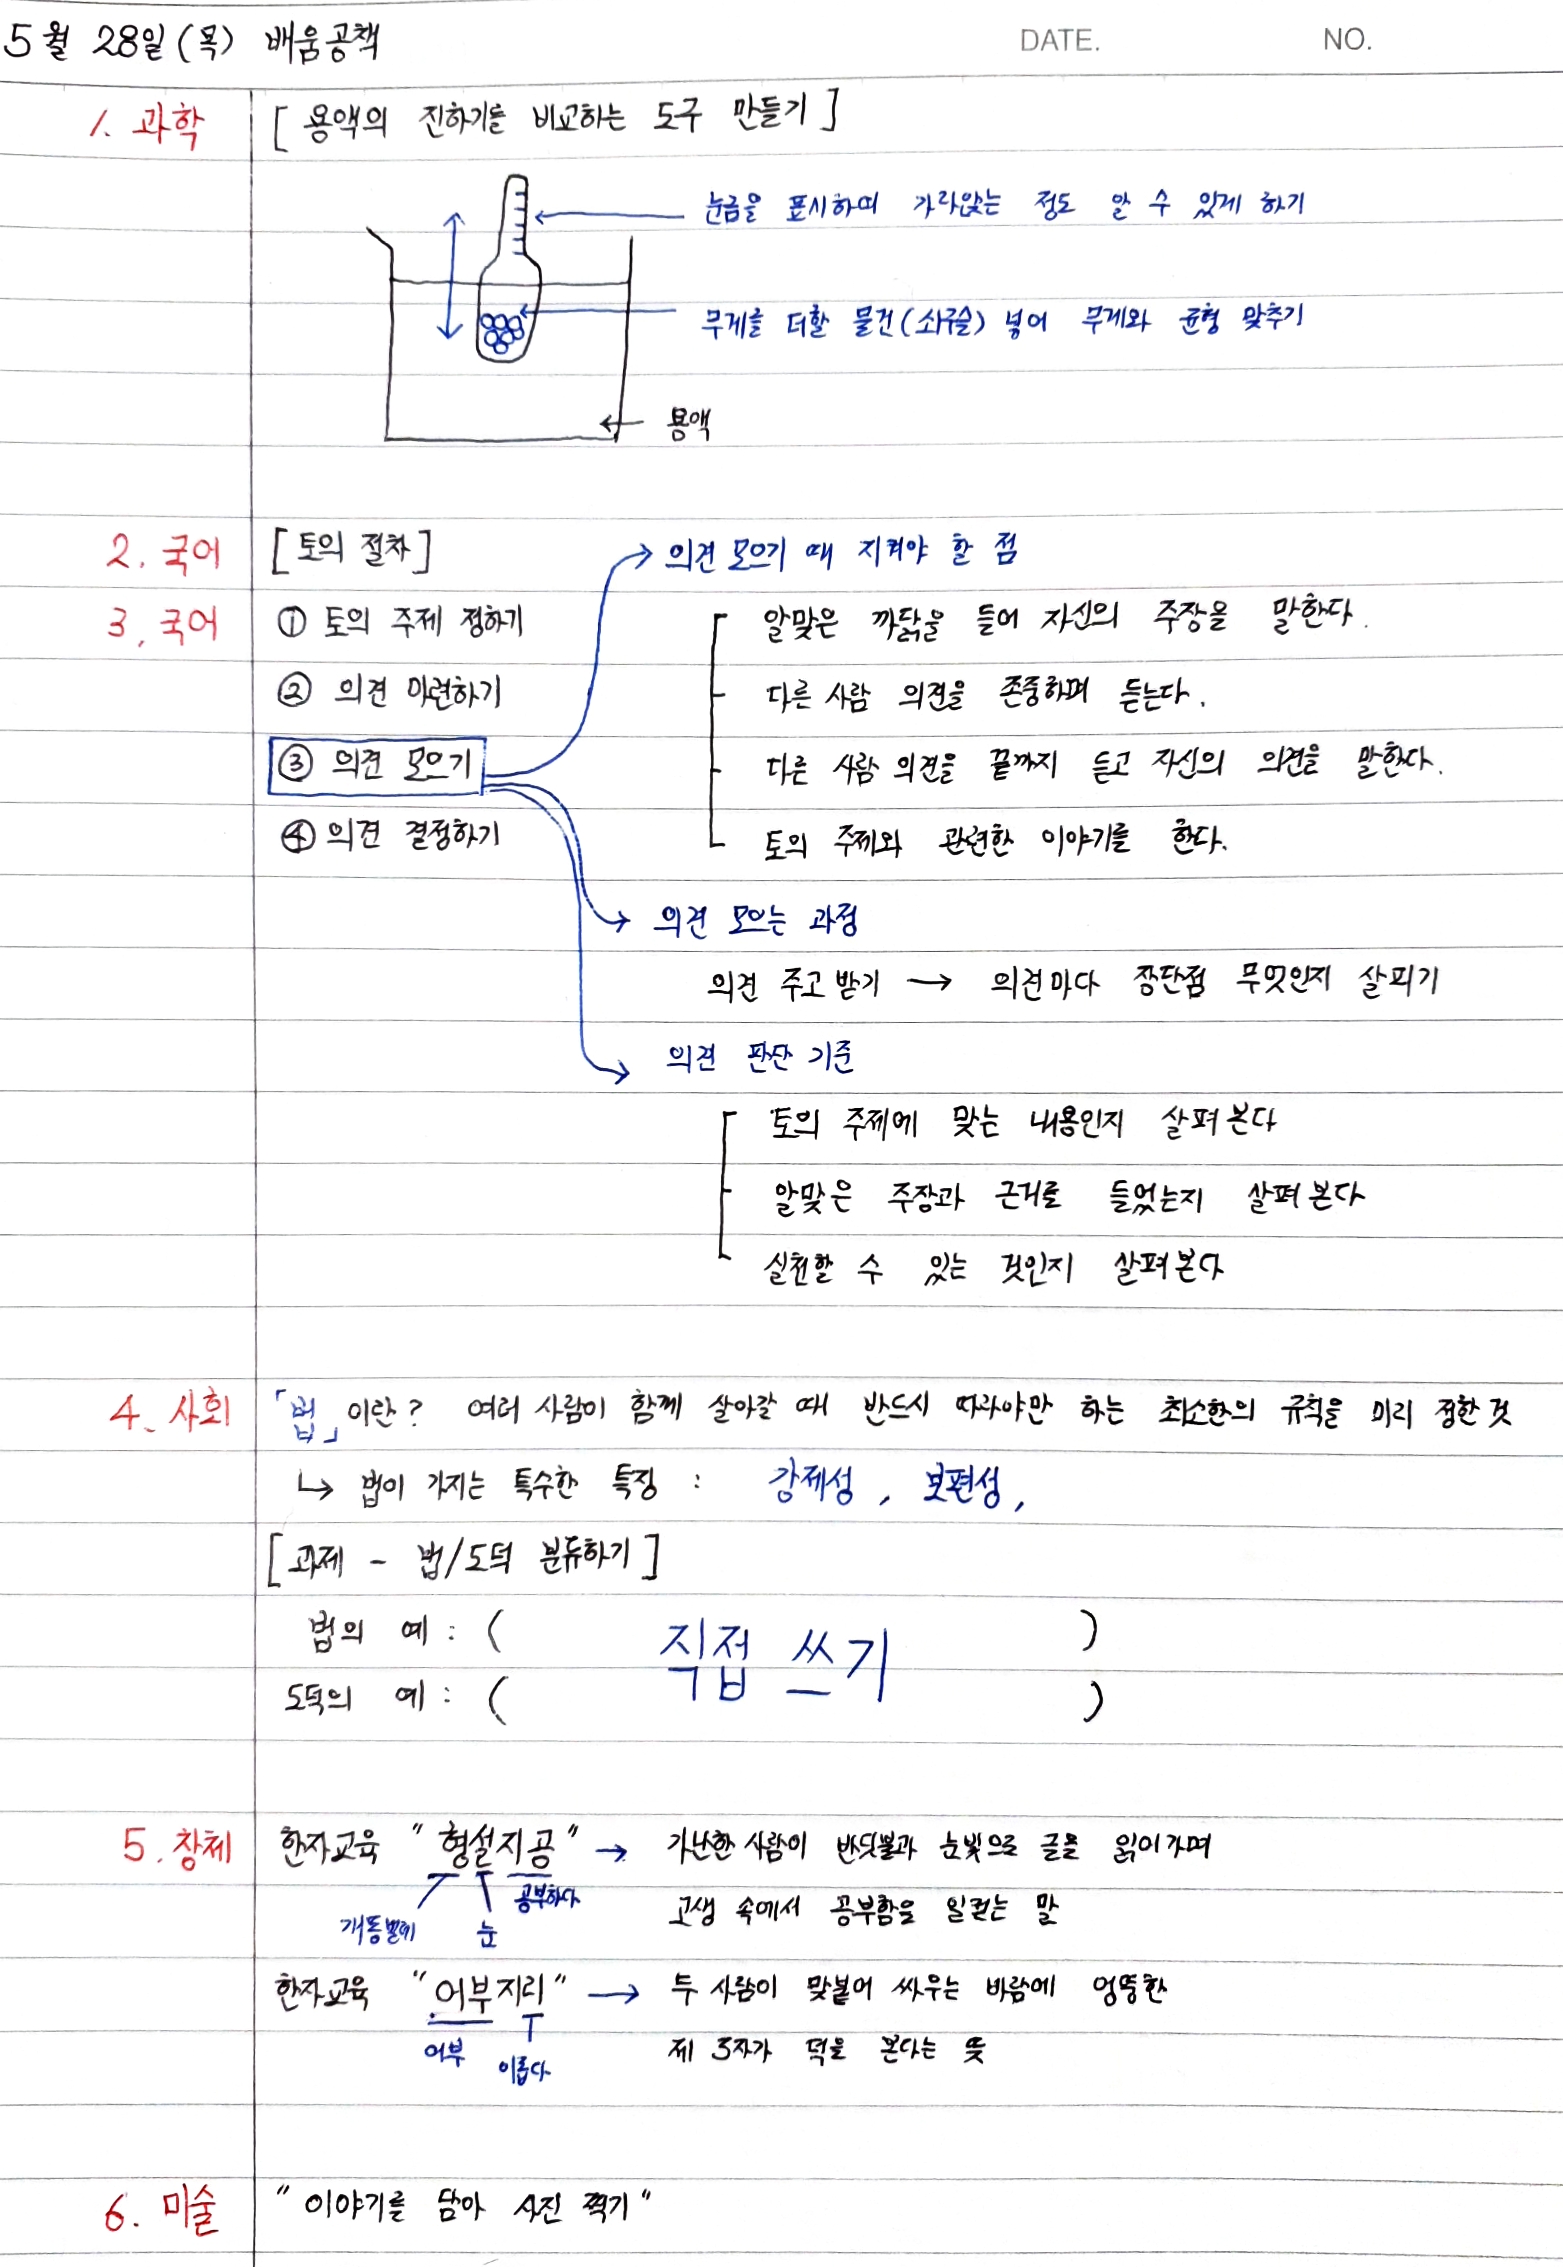 5월 28일(목) 배움공책 DATE. NO.
1. 과학 [용액의 진하기를 비교하는 도구 만들기]
눈금을 표시하여 가라앉는 정도 알 수 있게 하기
무게를 더할 물건(쇠구슬) 넣어 무게와 균형 맞추기
용액
2. 국어 [토의 절차]
3. 국어 ① 토의 주제 정하기
② 의견 마련하기
③ 의견 모으기
④ 의견 결정하기
의견 모으기 때 지켜야 할 점
알맞은 까닭을 들어 자신의 주장을 말한다.
다른 사람 의견을 존중하며 듣는다.
다른 사람 의견을 끝까지 듣고 자신의 의견을 말한다.
토의 주제와 관련한 이야기를 한다.
의견 모으는 과정
의견 주고 받기 → 의견마다 장단점 무엇인지 살피기
의견 판단 기준
토의 주제에 맞는 내용인지 살펴 본다
알맞은 주장과 근거를 들었는지 살펴 본다
실천할 수 있는 것인지 살펴 본다
4. 사회 「법」이란? 여러 사람이 함께 살아갈 때 반드시 따라야만 하는 최소한의 규칙을 미리 정한 것
↳ 법이 가지는 특수한 특징 : 강제성, 보편성,
[과제 - 법/도덕 분류하기]
법의 예 : ( )
직접 쓰기
도덕의 예 : ( )
5. 창체 한자교육 "형설지공" → 가난한 사람이 반딧불과 눈빛으로 글을 읽어가며
고생 속에서 공부함을 일컫는 말
개똥벌레 눈 공부하다
한자교육 "어부지리" → 두 사람이 맞붙어 싸우는 바람에 엉뚱한
제 3자가 덕을 본다는 뜻
어부 이롭다
6. 미술 "이야기를 담아 사진 찍기"